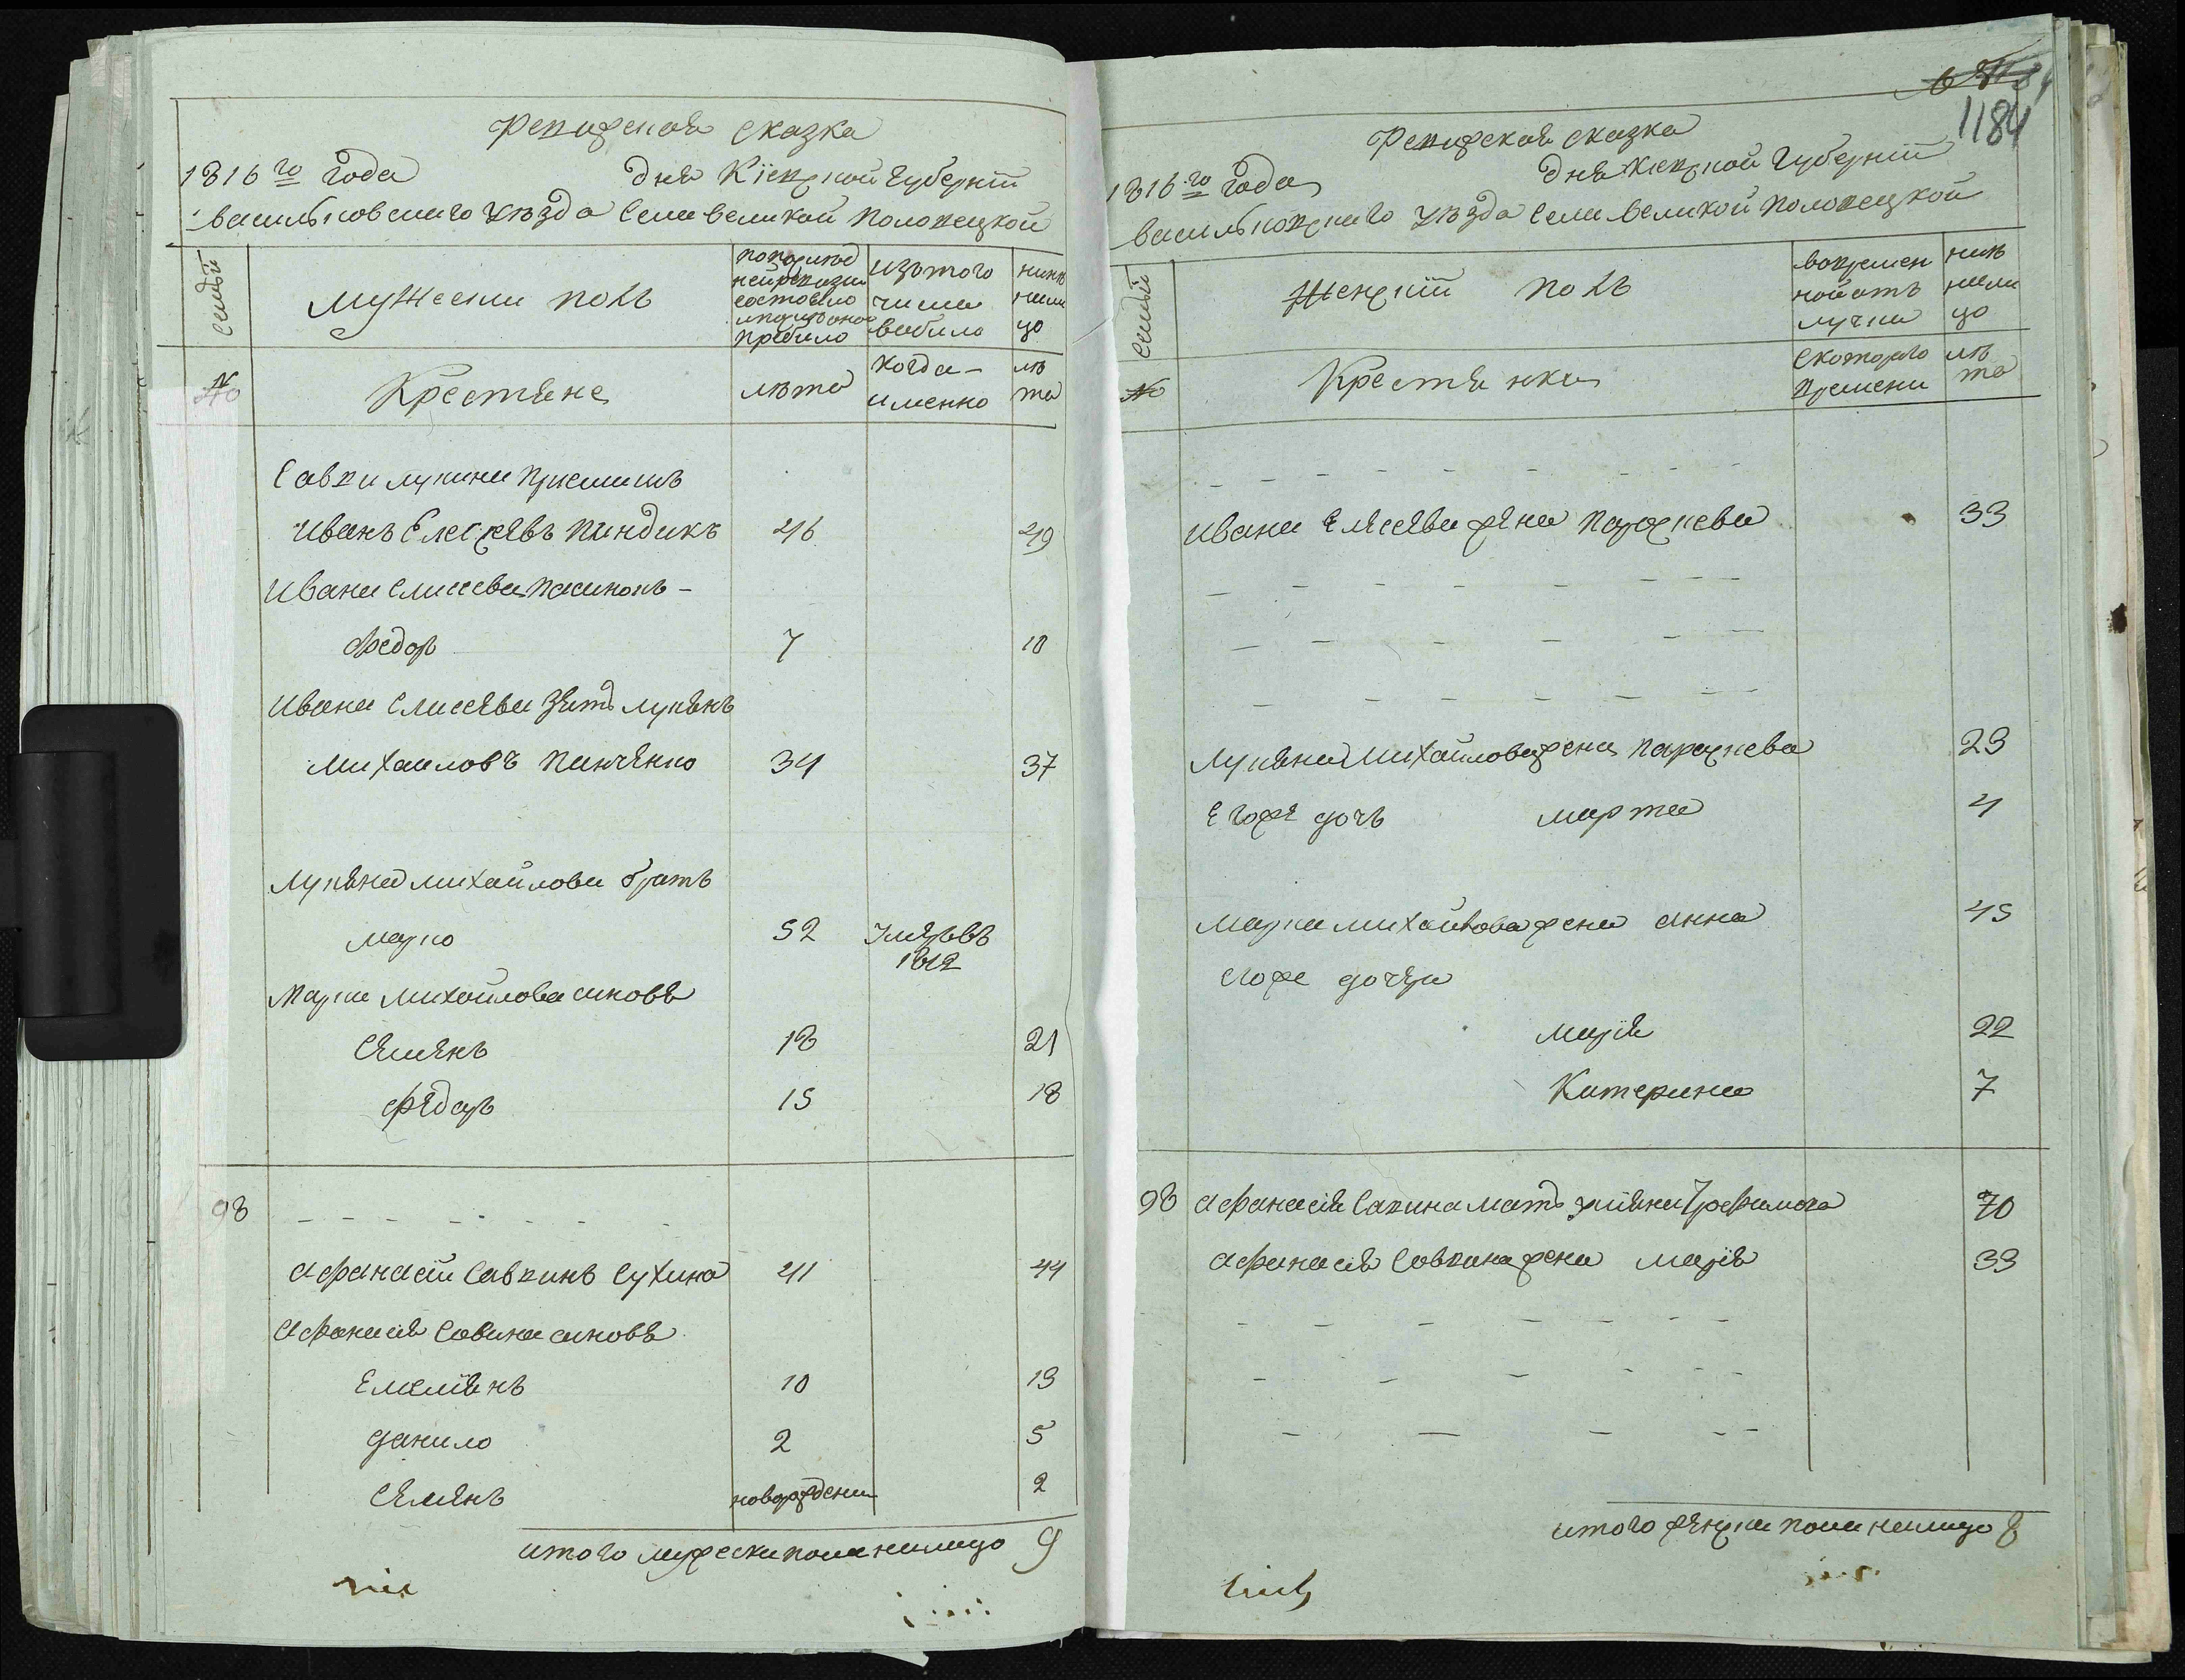 Ревизская сказка
1816го года дня Кіевской Губерніи
Васильковского уезда села великой половецкой
семьи
Мужеский полъ
по последней ревизии состояло и после оной прибыло
изътого числа выбыло
ныне налицо
№
Крестяне
лета
когда именно
лета
Савки лукина приемишъ
Иванъ Елесеевъ Пиндикъ 46 49
Ивана Елисеева пасинокъ -
Федор 7 10
Ивана Елисеева зять лукянъ
Михаиловъ Пинченко 34 37
Лукяна Михайлова братъ
марко 52 умревъ 1812
Марка Михайлова синове
Семенъ 18 21
Федоръ 15 18
98
Афанасій Савкинъ Сухина 41 44
Афанасія Савкина синове
Емелиянъ 10 13
данило 2 5
Семенъ новорожденн 2
итого мужеска пола налицо 9
1184
Ревизская сказка
1816го года дня Кіевской Губерніи
Васильковского уезда села великой половецкой
семьи
Женскій полъ
во временной отлучки
ныне налицо
№
Крестянки
с которого времени
лета
Ивана Елесеева жена Параскева 33
Лукяна Михайлова жена Параскева 23
Его же дочь марта 4
Марка Михайлова жена анна 45
Его же дочери
марія 22
Катерина 7
98 Афанасія Савкина мать Трофимова 70
Афанасія Савкина жена марія 33
итого женска пола налицо 8